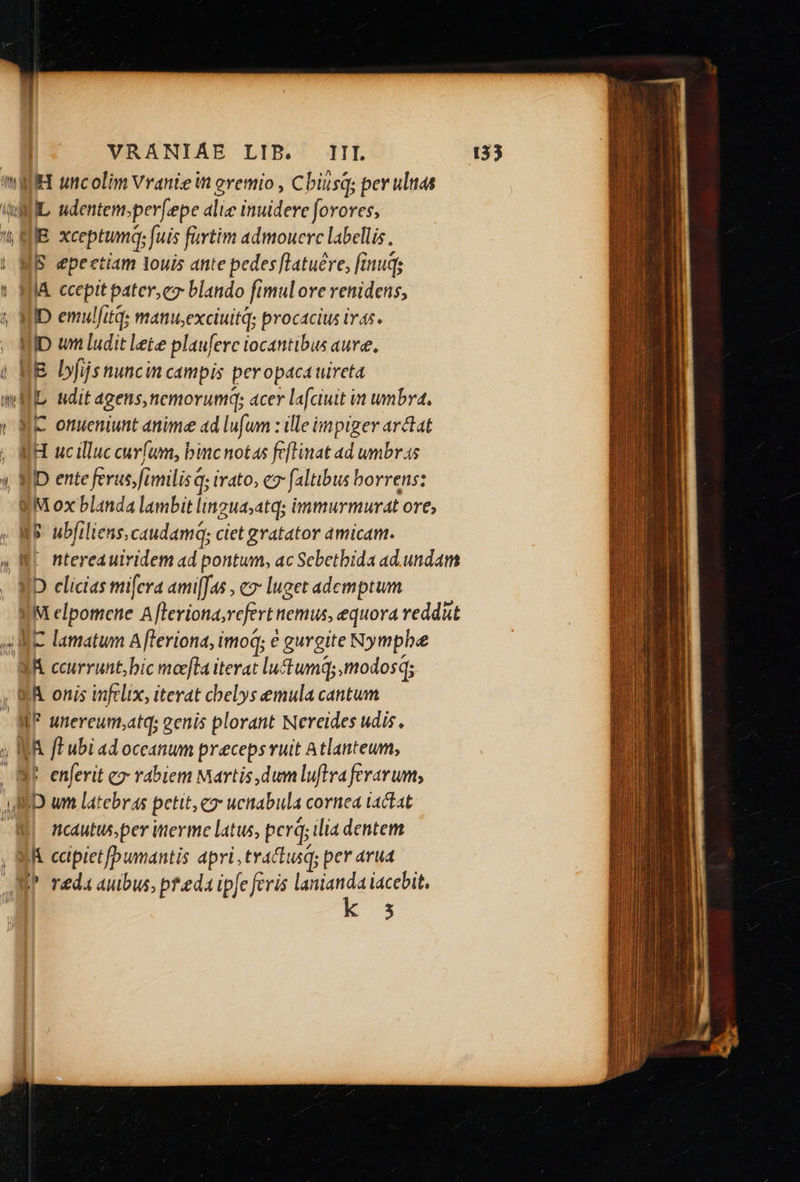 VRANIAE LIB. III. 133
H unc olim Vranie in gremio, Chiisq; per ulnas
L udentem, persæpe aliæ inuidere sorores,
E xceptumq; suis furtim admouere labellis.
S æpe etiam Iouis ante pedes statuêre, sinuq;
A ccepit pater, & blando simul ore renidens,
D emulsitq; manu, exciuitq; procacius iras.
D um ludit lete plausere iocantibus auræ,
E lysijs nunc in campis per opaca uireta
L udit agens, nemorumq; acer lasciuit in umbra.
C onueniunt animæ ad lusum: ille impiger arctat
H uc illuc cursum, hinc notas festinat ad umbras
D ente ferus, similisq; irato, & saltibus horrens:
M ox blanda lambit lingua, atq; immurmurat ore,
S ubsiliens, caudamq; ciet gratator amicam.
I nterea uiridem ad pontum, ac Sebethida ad undam
D elicias misera amissas, & luget ademptum
M elpomene Asteriona, refert nemus, æquora reddūt
C lamatum Asteriona, imoq; è gurgite Nymphæ
A ccurrunt, hic mœsta iterat luctumq;, modosq;
A onis infelix, iterat chelys æmula cantum
F unereum, atq; genis plorant Nereides udis.
A st ubi ad oceanum præceps ruit Atlanteum,
P enserit & rabiem Martis, dum lustra ferarum,
D um latebras petit, & uenabula cornea iactat
I ncautus, per inerme latus, perq; ilia dentem
A ccipiet spumantis apri, tractusq; per arua
P ræda auibus, præda ipse feris lanianda iacebit.
k 3